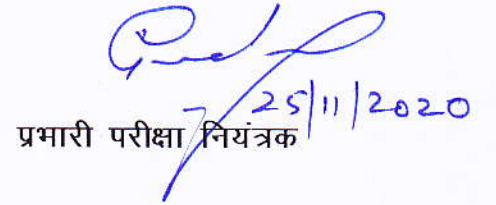 25/11/2020
प्रभारी परीक्षा नियंत्रक